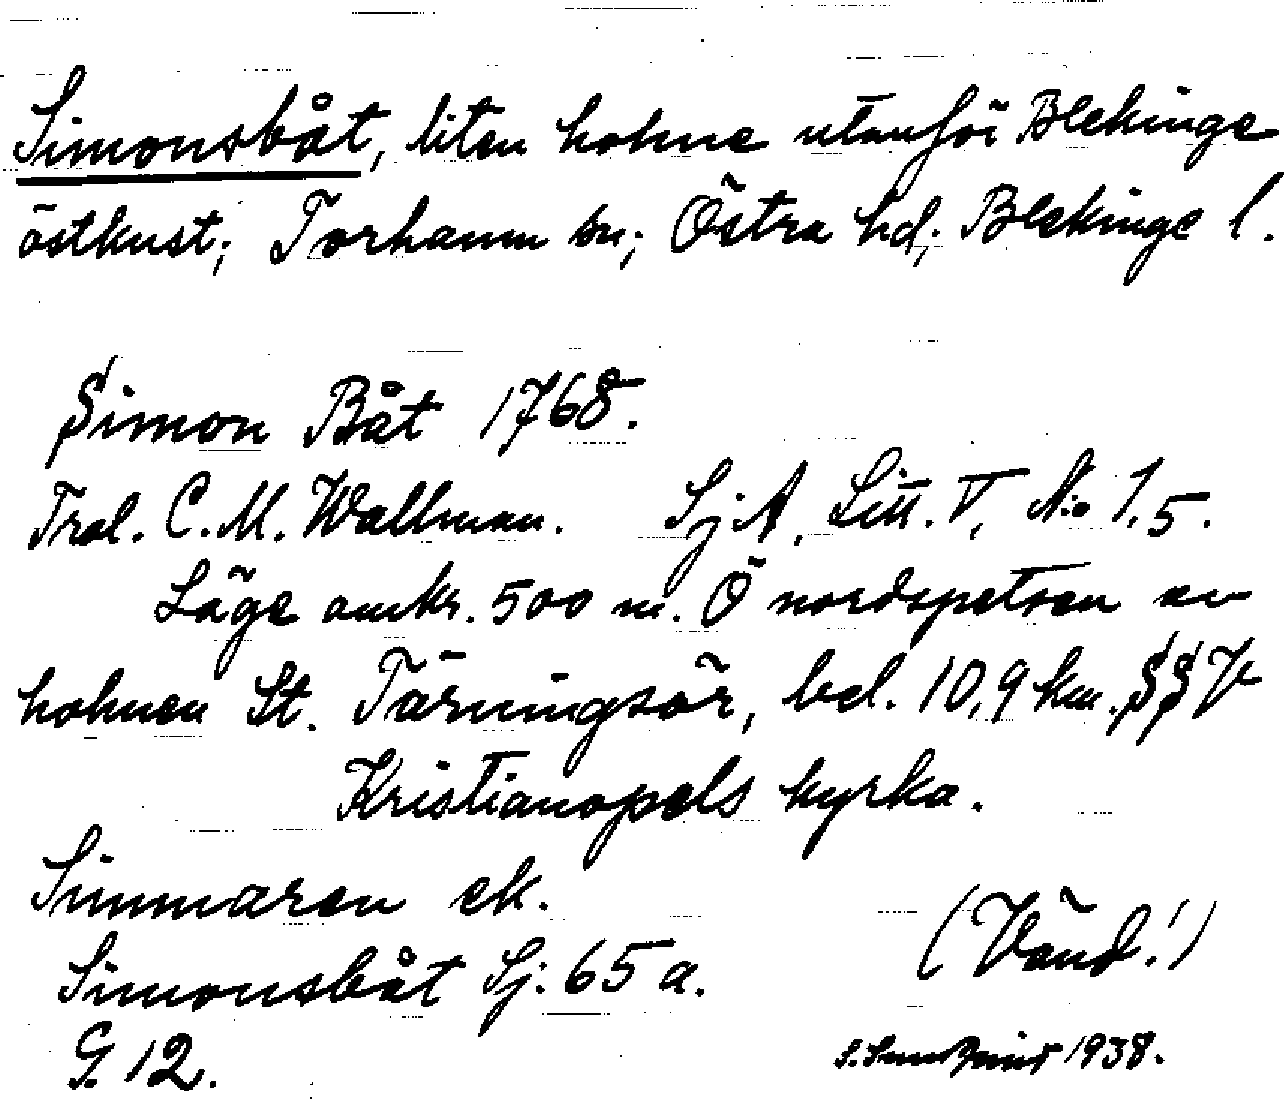 Simonsbåt, liten holme utanför Blekinge
östkust; Torhamn sn; Östra hd; Blekinge l.
Simon Båt 1768.
Trol. C. M. Wallman. Sj A, Litt. V, No 1.5.
Läge omkr. 500 m. Ö nordspetsen av
holmen St. Tärningsör, bel. 10,9 km. SSV
Kristianopels kyrka.
Simmaren ek.
Simonsbåt Sj. 65 a.
G. 12.
(Vänd!)
1938.